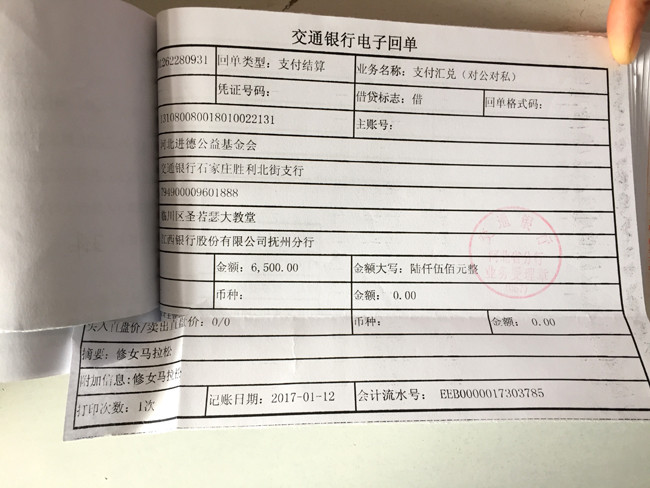 交通银行电子回单
1262280931 回单类型: 支付结算 业务名称: 支付汇兑(对公对私)
凭证号码: 借贷标志: 借 回单格式码:
131080080018010022131 主账号:
河北进德公益基金会
交通银行石家庄胜利北街支行
794900009601888
临川区圣若瑟大教堂
江西银行股份有限公司抚州分行
金额: 6,500.00 金额大写: 陆仟伍佰元整
币种: 金额: 0.00
买入直盘价/卖出直盘价: 0/0 币种: 金额: 0.00
摘要: 修女马拉松
附加信息: 修女马拉松
打印次数: 1次 记账日期: 2017-01-12 会计流水号: EEB0000017303785